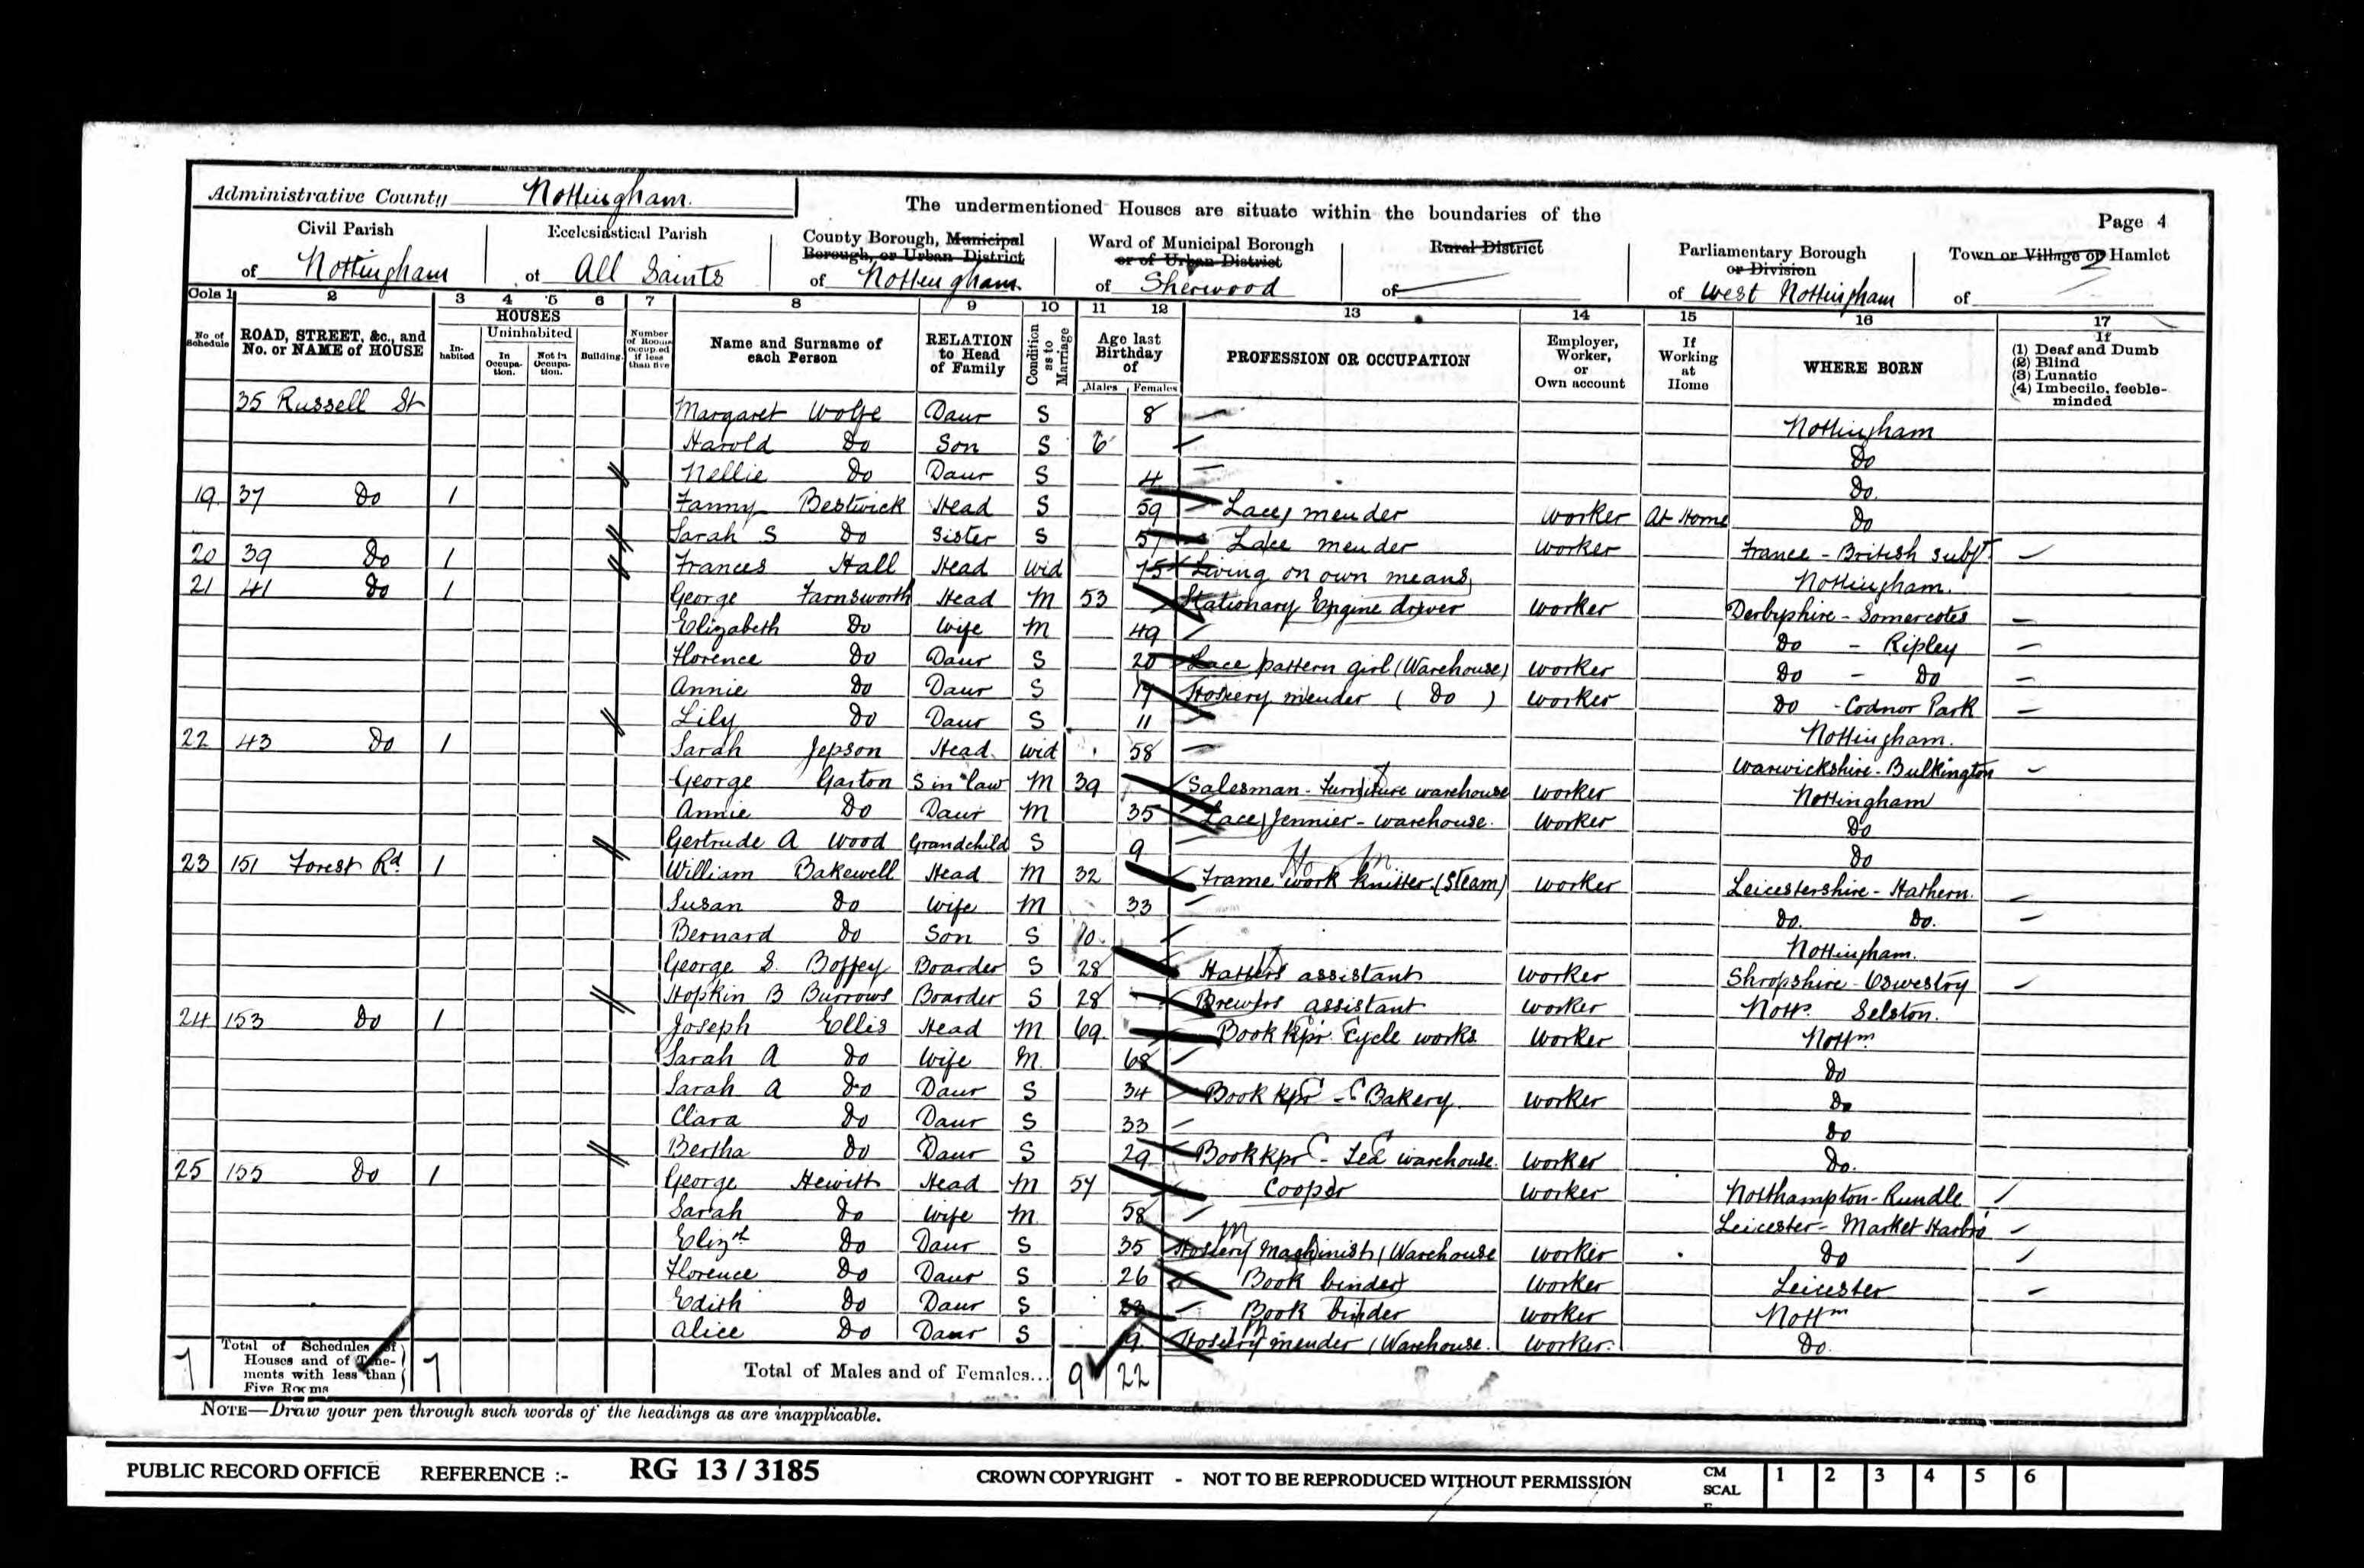 Administrative County Nottingham.
The undermentioned Houses are situate within the boundaries of the
Page 4
Civil Parish of Nottingham
Ecclesiastical Parish of All Saints
County Borough, Municipal Borough, or Urban District of Nottingham.
Ward of Municipal Borough or of Urban District of Sherwood
Rural District of
Parliamentary Borough or Division of West Nottingham
Town or Village or Hamlet of
Cols 1 2 3 4 5 6 7 8 9 10 11 12 13 14 15 16 17
No of Schedule
ROAD, STREET, &c., and No. or NAME of HOUSE
HOUSES
Inhabited
Uninhabited
In Occupation.
Not in Occupation.
Building
Number of Rooms occupied if less than five
Name and Surname of each Person
RELATION to Head of Family
Condition as to Marriage
Age last Birthday of
Males Females
PROFESSION OR OCCUPATION
Employer, Worker, or Own account
If Working at Home
WHERE BORN
If (1) Deaf and Dumb (2) Blind (3) Lunatic (4) Imbecile, feeble-minded
35 Russell St Margaret Wolfe Daur S 8 Nottingham
Harold Do Son S 6 Do
Nellie Do Daur S 4 Do
19 37 Do 1 Fanny Bestwick Head S 59 Lace mender Worker At Home Do
Sarah S Do Sister S 57 Lace mender Worker France - British subjt
20 39 Do 1 Frances Hall Head Wid 75 Living on own means Nottingham.
21 41 Do 1 George Farnsworth Head M 53 Stationary Engine driver Worker Derbyshire - Somercotes
Elizabeth Do Wife M 49 Do - Ripley
Florence Do Daur S 20 Lace pattern girl (Warehouse) Worker Do - Do
Annie Do Daur S 17 Hosiery mender ( Do ) Worker Do - Codnor Park
Lily Do Daur S 11 Nottingham.
22 43 Do 1 Sarah Jepson Head Wid 58 Warwickshire - Bulkington
George Garton S in law M 39 Salesman - Furniture warehouse Worker Nottingham
Annie Do Daur M 35 Lace Jennier - warehouse. Worker Do
Gertrude A Wood Grandchild S 9 Do
23 151 Forest Rd. 1 William Bakewell Head M 32 Frame work knitter (Steam) Worker Leicestershire - Hathern.
Susan Do Wife M 33 Do. Do.
Bernard Do Son S 10 Nottingham.
George S. Boffey Boarder S 28 Hatters assistant Worker Shropshire - Oswestry
Hopkin B Burrows Boarder S 28 Brewers assistant Worker Notts. Selston.
24 153 Do 1 Joseph Ellis Head M 69 Book kpr. Cycle works Worker Nottm
Sarah A Do Wife M. 68 Do
Sarah A Do Daur S 34 Book kpr - Bakery Worker Do
Clara Do Daur S 33 Do
Bertha Do Daur S 29 Book kpr - Tea warehouse. Worker Do.
25 155 Do 1 George Hewitt Head M 57 Cooper Worker Northampton - Rundle
Sarah Do Wife M 58 Leicester - Market Harbro'
Elizth Do Daur S 35 Hosiery Machinist (Warehouse Worker Do
Florence Do Daur S 26 Book binder Worker Leicester
Edith Do Daur S Book binder Worker Nottm
Alice Do Daur S 19 Hosiery mender (Warehouse. Worker. Do.
7 Total of Schedules of Houses and of Tenements with less than Five Rooms 7 Total of Males and of Females... 9 22
NOTE—Draw your pen through such words of the headings as are inapplicable.
PUBLIC RECORD OFFICE REFERENCE :- RG 13 / 3185 CROWN COPYRIGHT - NOT TO BE REPRODUCED WITHOUT PERMISSION
CM SCAL 1 2 3 4 5 6